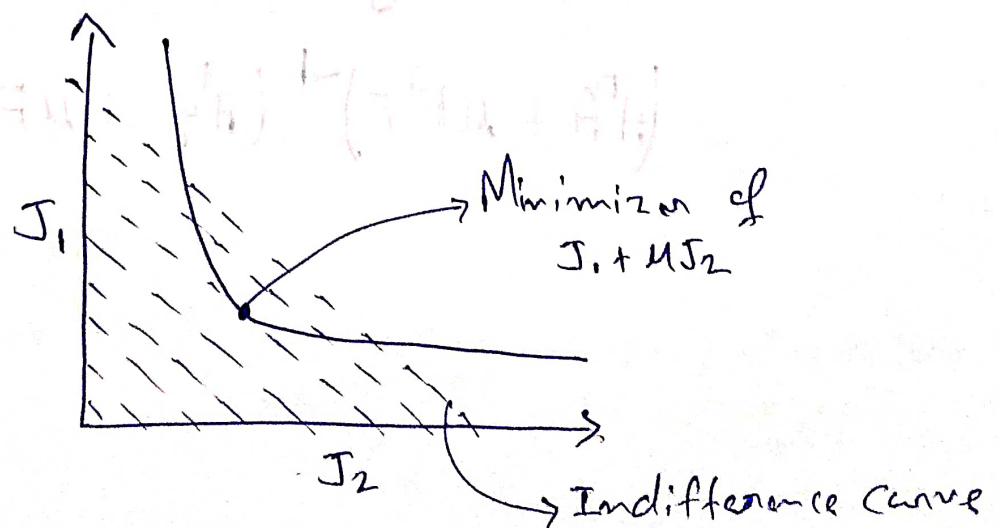 J₁
Minimizer of
J₁ + μJ₂
J₂
Indifference curve